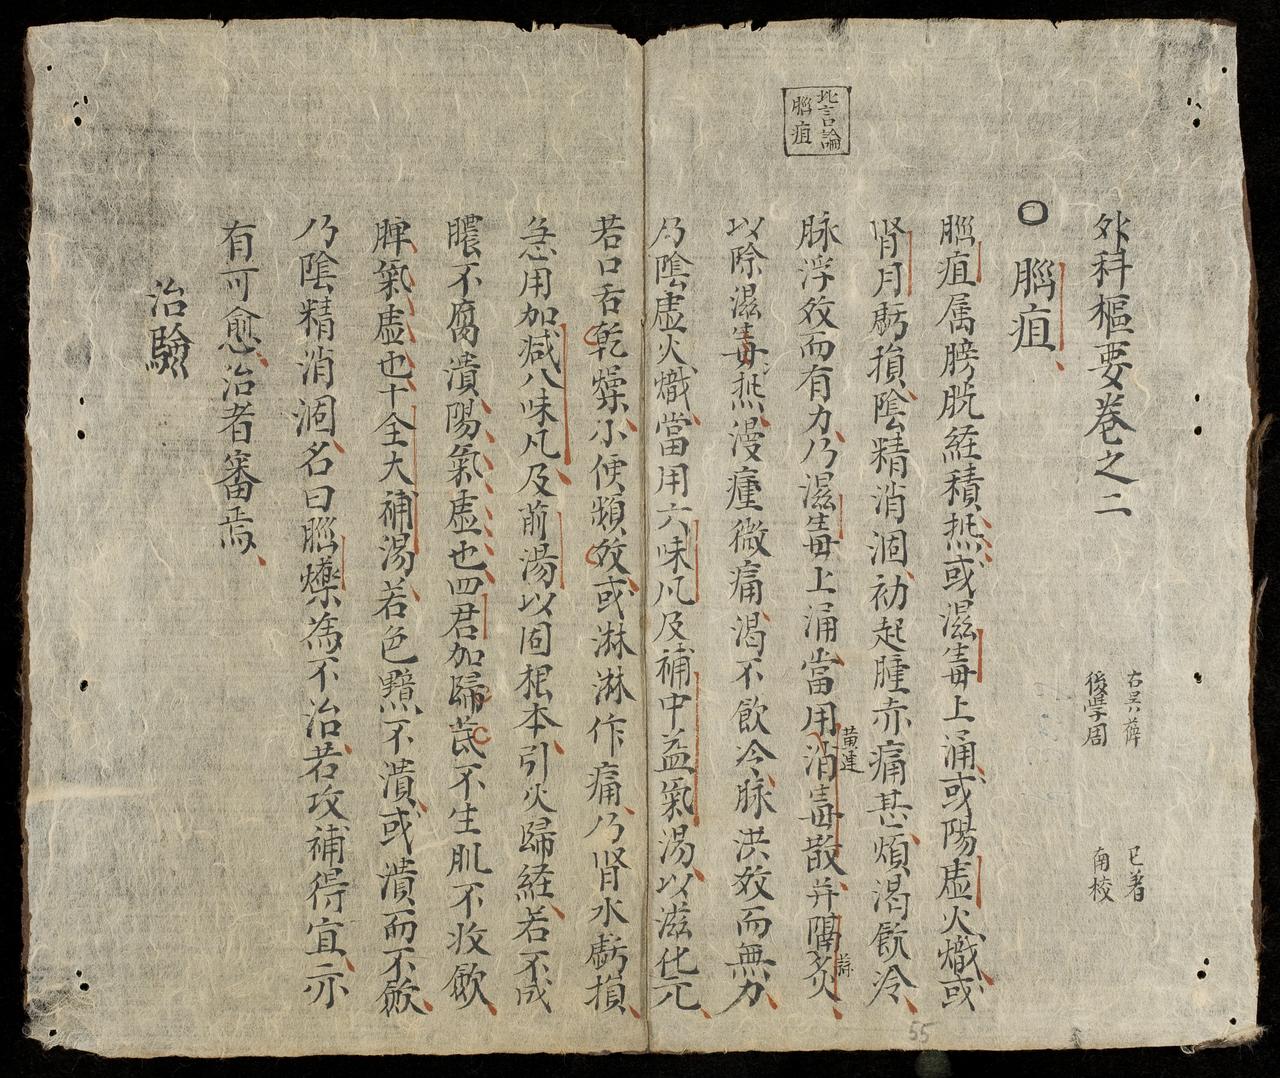 此言論
腦疽
外科樞要巻之二
古吳薛 已著
後學周 南校
○腦疽
腦疽属膀胱経積𤍠或濕毒上涌或陽虚火熾或
肾月虧損陰精消涸初起腫赤痛甚煩渴飲冷
脉浮数而有力乃濕毒上涌當用
黄連
消毒散并隔
蒜
灸
以除濕毒𤍠漫瘇微痛渴不飲冷脉洪数而無力
乃陰虚火熾當用六味凡及補中益氣湯以滋化元
若口舌乾燥小便頻数或淋淋作痛乃肾水虧損
急用加减八味凡及前湯以固根本引火歸経若不成
膿不腐潰陽氣虚也四君加歸芪不生肌不收斂
脾氣虚也十全大補湯若色黯不潰或潰而不斂
乃陰精消涸名曰腦爍為不治若攻補得宜亦
有可愈治者審焉
治驗
55